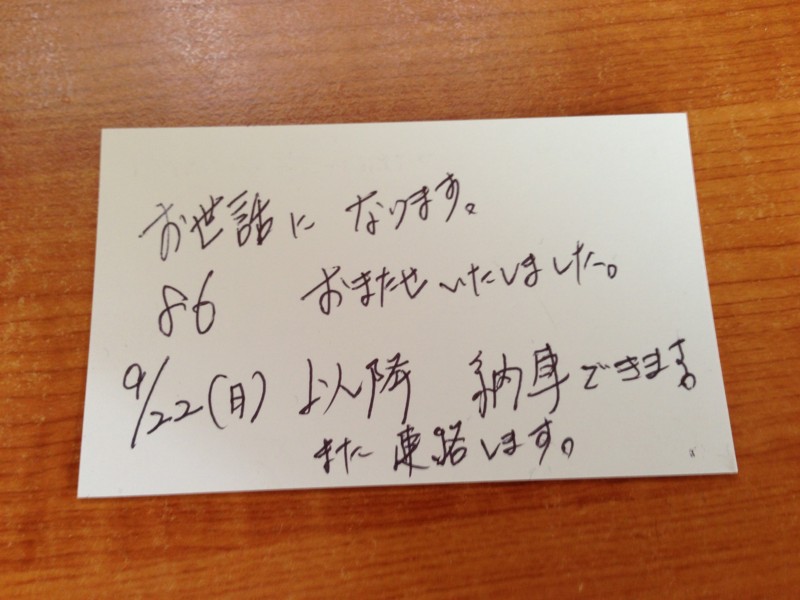 お世話になります。
86 おまたせいたしました。
9/22(日)以降 納車できます。
また連絡します。